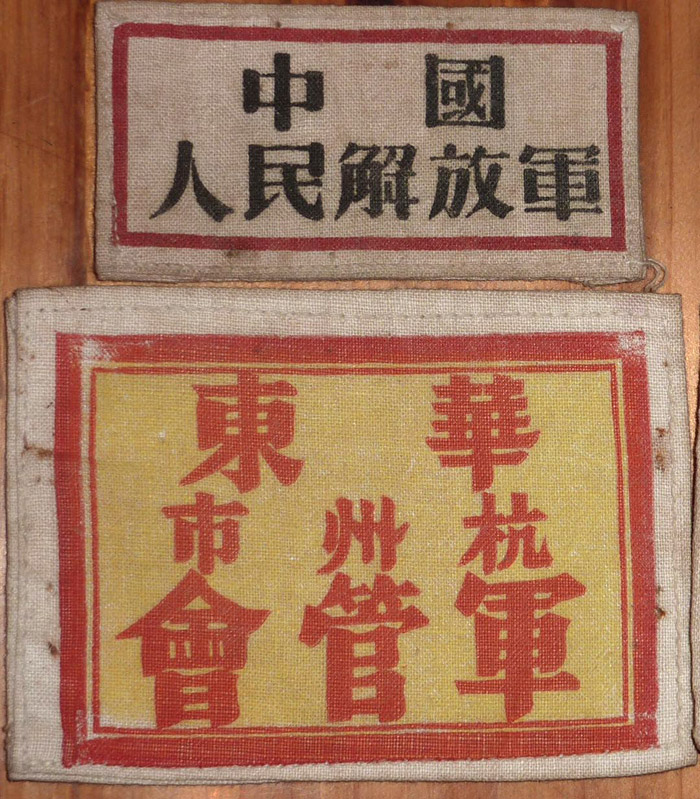 中國
人民解放軍
華東
杭州市
軍管會